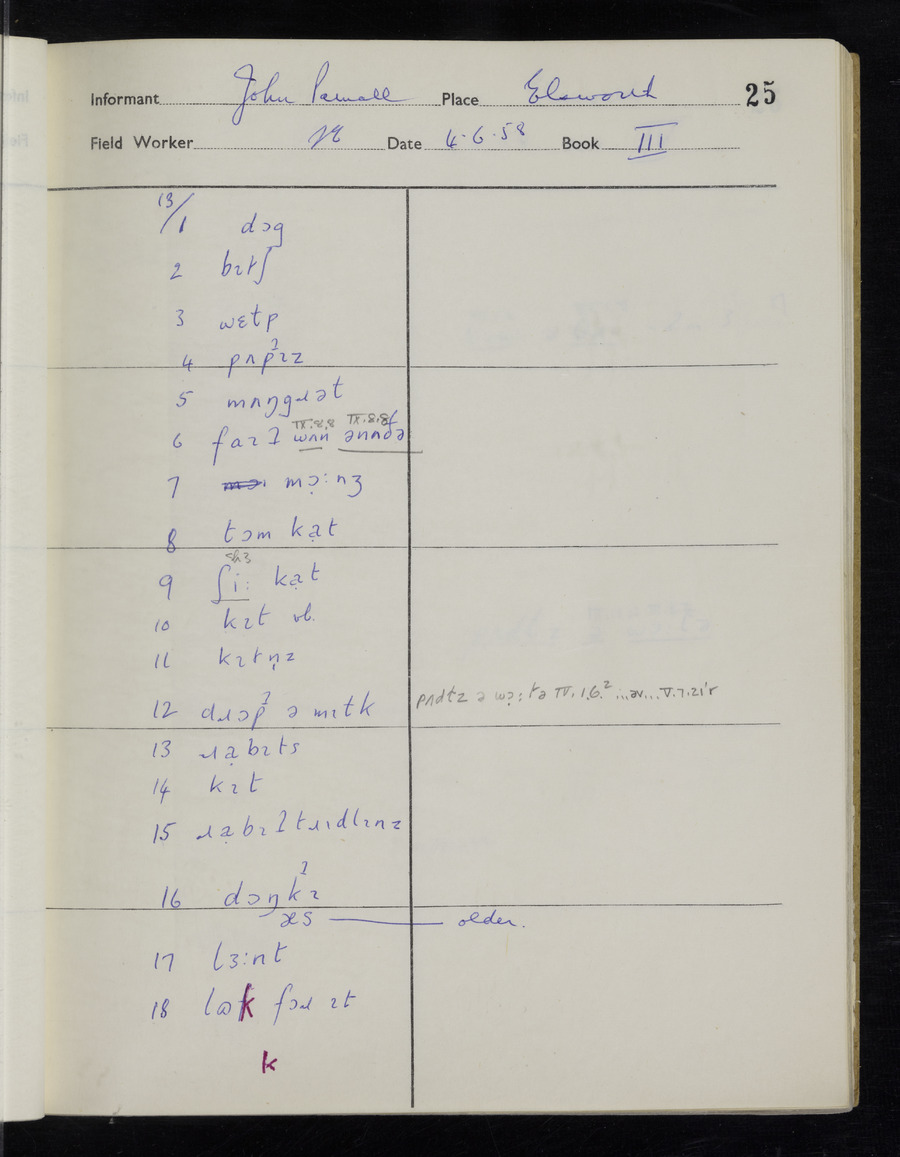 Informant John Parnall Place Elsworth 25
Field Worker Date 4.6.58 Book III
13/1 dɔg
2 bɪtʃ
3 wɛtp
4 pʌpˀɪz
5 mʌŋgɹət
IX.8.8 IX.8.8
6 faɪʔ wʌn ənʌðə
7 mɔ̣:nʒ
8 tɔm kạt
9 ʃi: kạt
10 kɪt vb.
11 kɪtn̩z
12 dɹɔpˀ ə mɪɫk pʌdɫz ə wɔ̣:tə IV.1.6.² ...əv... V.7.21 r
13 ɹạbɪts
14 kɪt
15 ɹạbɪʔtɹɪdlɪnz
16 dɔŋkˀɪ
æs — older.
17 lɜ:nt
18 lɷk fɔɹ ɪt
k